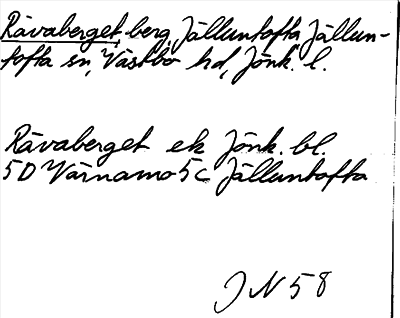 Rävaberget, berg, Jälluntofta, Jällun-
tofta sn, Västbo hd, Jönk. l.
Rävaberget ek Jönk. bl.
5D Värnamo 5c Jälluntofta
JN 58